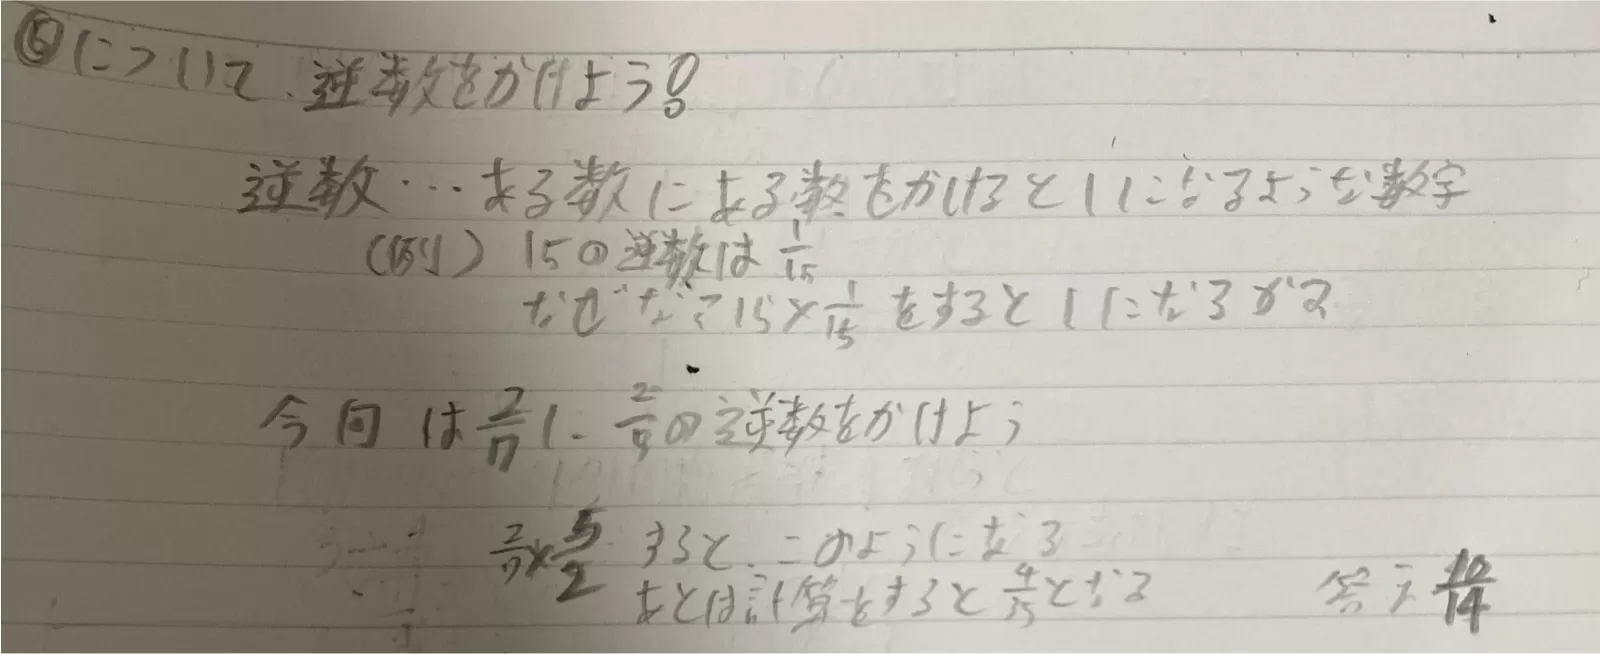 ⑤について、逆数をかけよう!
逆数…ある数にある数をかけると1になるような数字
(例) 15の逆数は 1/15
なぜなら15×1/15をすると1になるから
今回は2/7に、2/5の逆数をかけよう
2/7×5/2 すると、このようになる
あとは計算をすると 4/35となる 答え 10/14